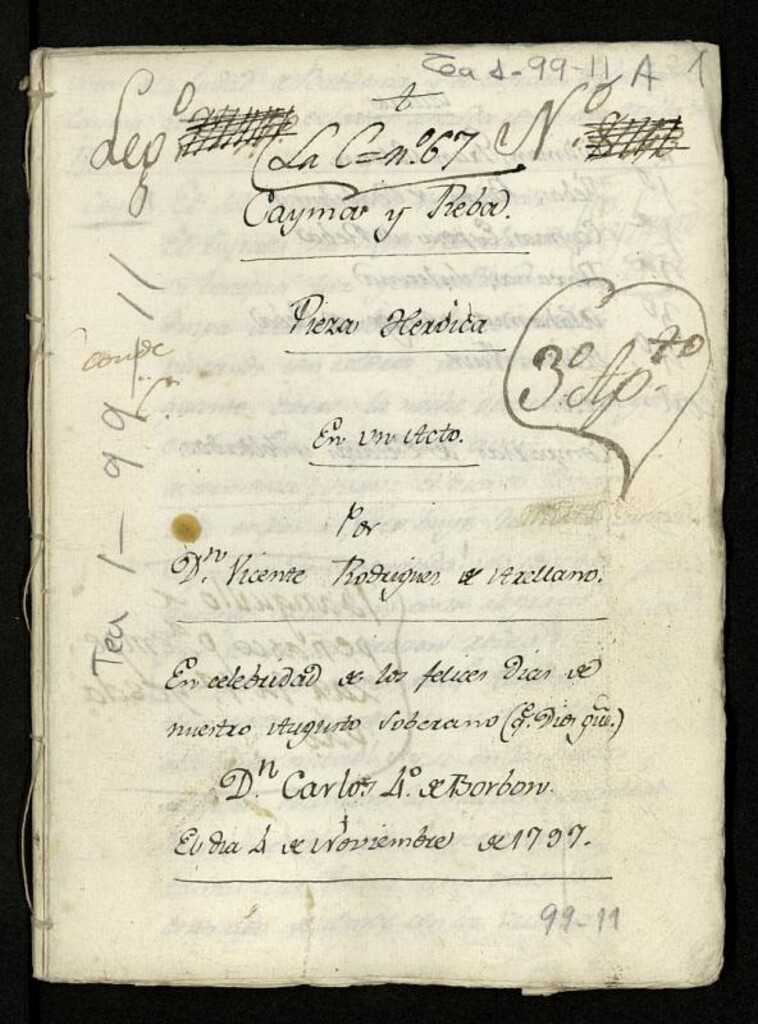 Tea 1-99-11 A 1
t
Leg.º La C=n.º 67 Nº
Caymar y Reba.
Pieza Heróica
3º Ap.to
conde
En un Acto.
Por
D.n Vicente Rodriguez de Arellano.
Tea 1-99-11
En celebridad de los felices dias de
nuestro Augusto Soberano (q.e Dios gũe.)
D.n Carlos 4.º de Borbon.
El dia 4 de Noviembre de 1797.
99-11